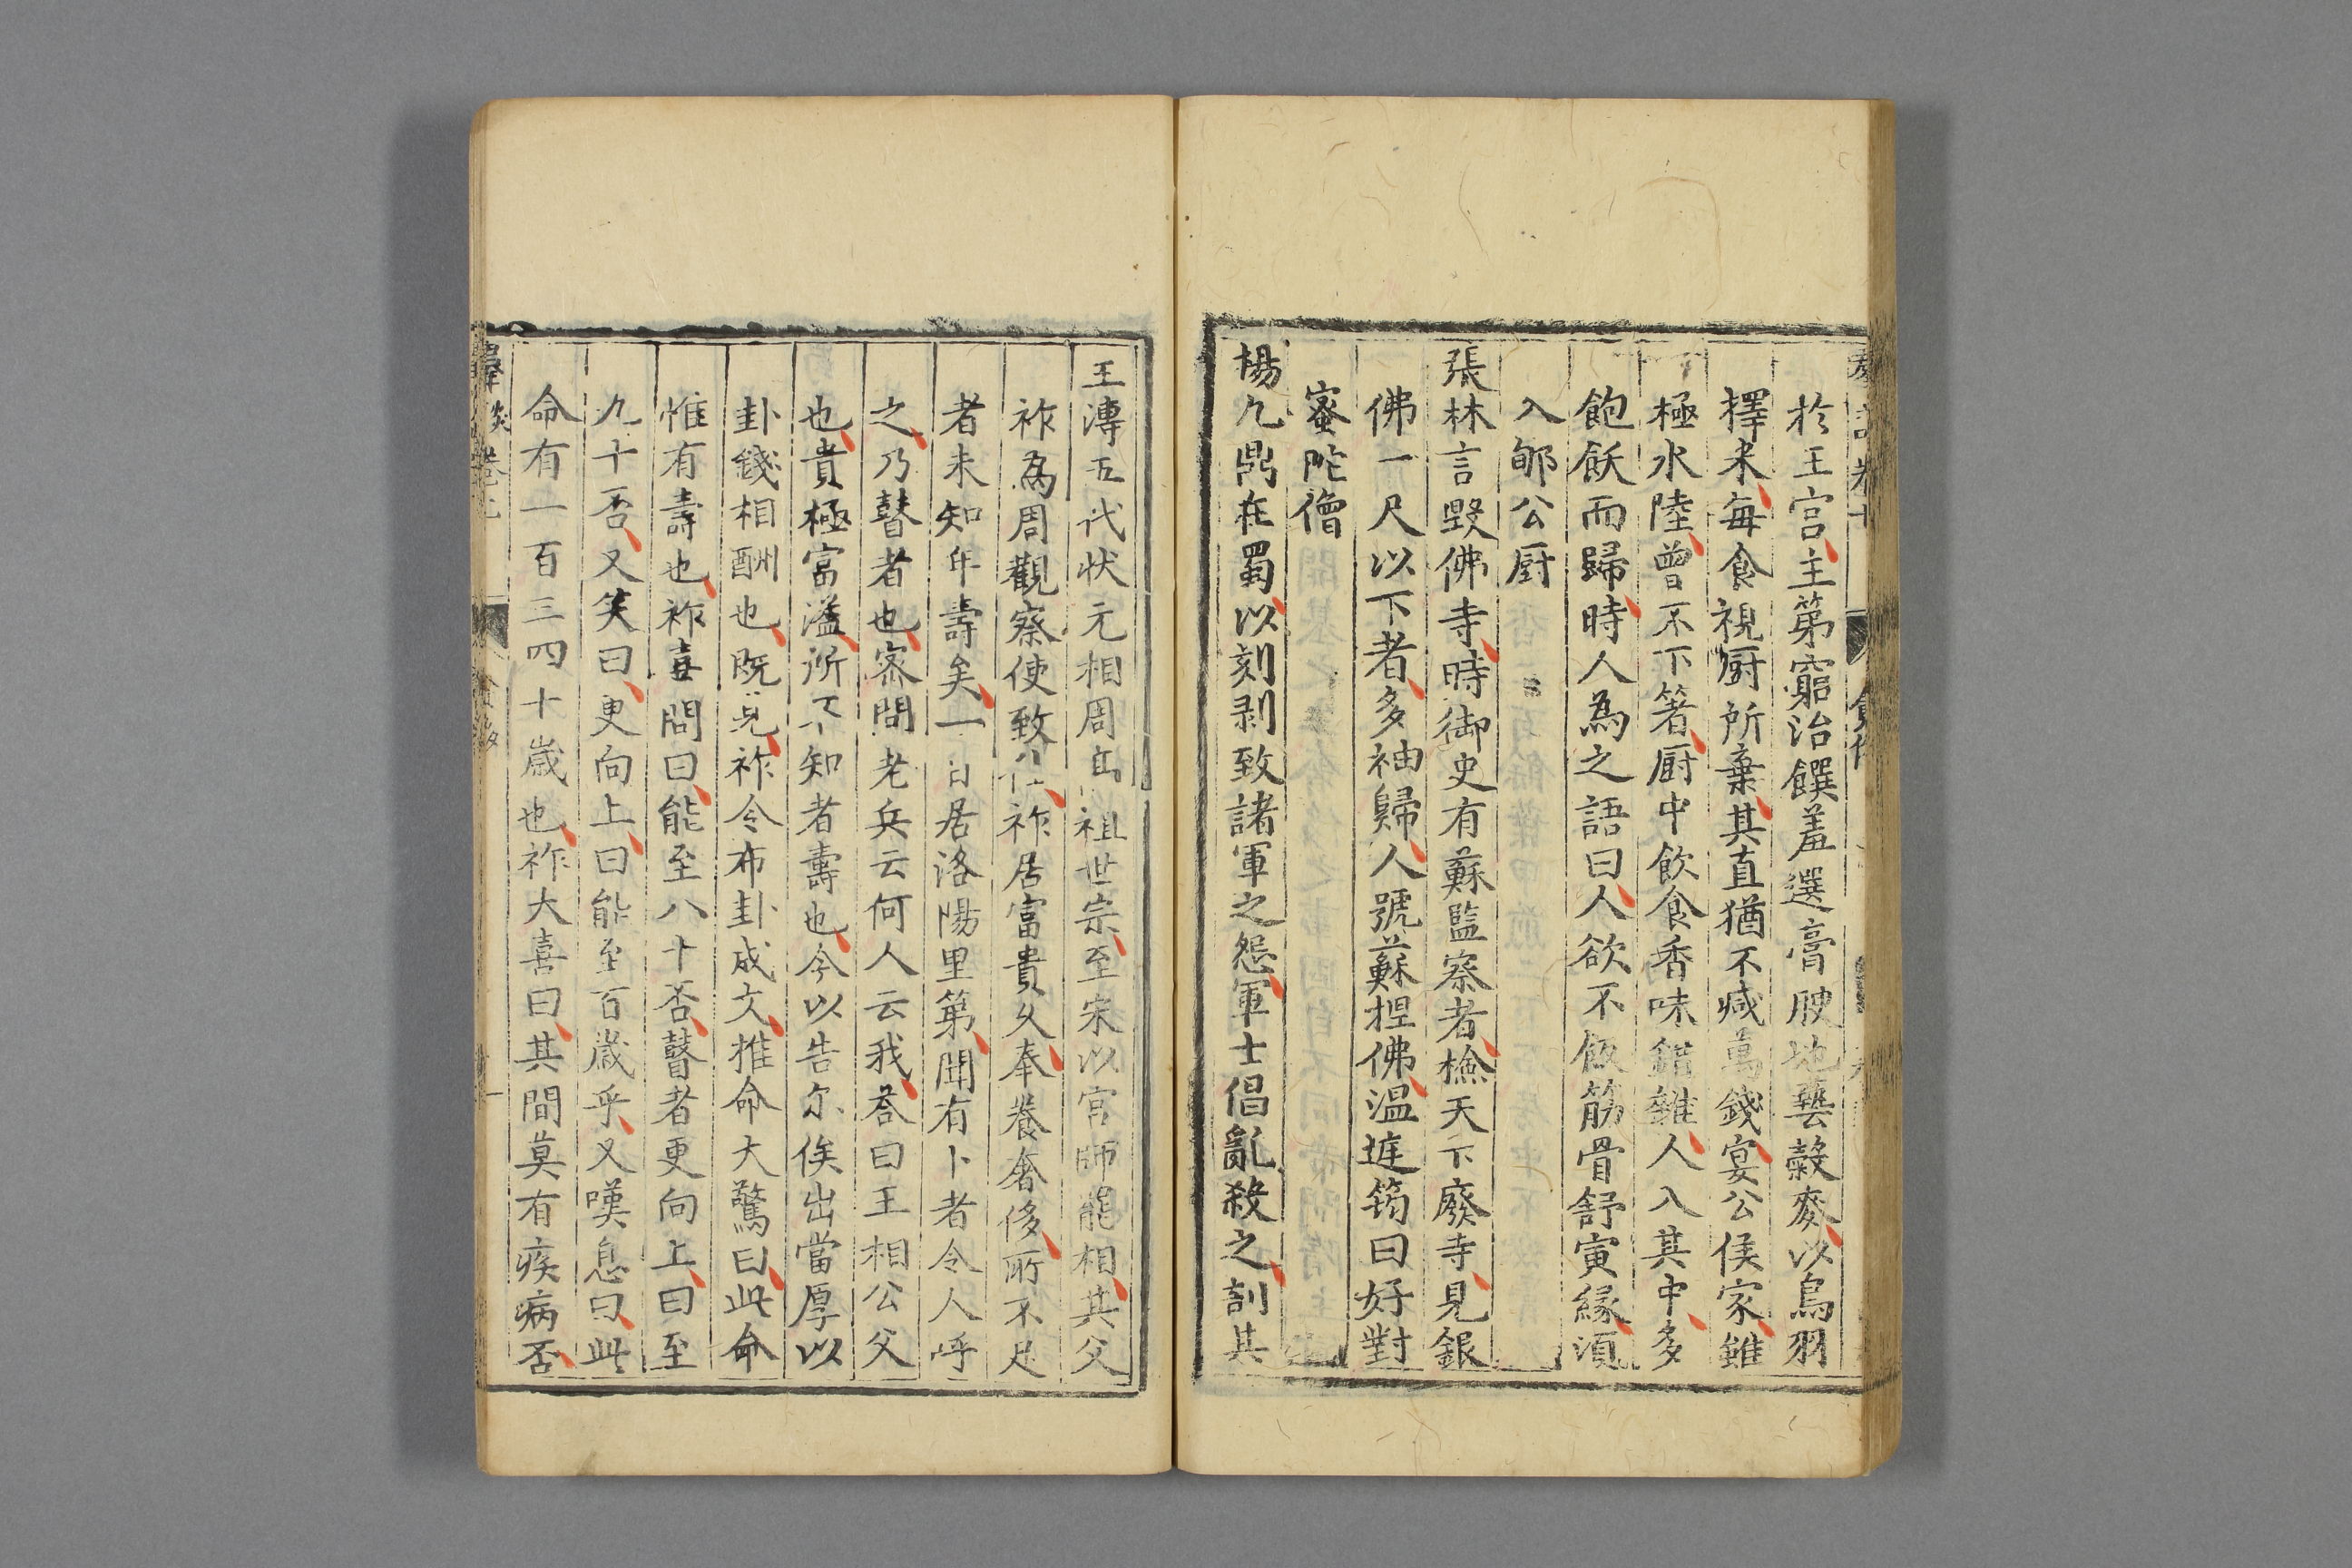 於王宫主第窮治饌羞選膏腴地藝穀麥以鳥羽
擇米每食視厨所棄其直猶不减萬錢宴公侯家雖
極水陸曾不下箸厨中飲食香味錯雜人入其中多
飽飫而歸時人為之語曰人欲不飯筋骨舒寅緣須
入郇公厨
張林言毀佛寺時御史有蘇監察者檢天下廢寺見銀
佛一尺以下者多袖歸人號蘇捏佛溫庭筠曰好對
蜜陀僧
楊九鼎在蜀以刻剥致諸軍之怨軍士倡亂殺之刳其
王溥五代状元相周高祖世宗至宋以宫師罷相其父
祚為周觀察使致仕祚居富貴久奉養奢侈所不足
者未知年壽矣一日居洛陽里第聞有卜者令人呼
之乃瞽者也密問老兵云何人云我荅曰王相公父
也貴極富溢所不知者壽也今以告尔俟出當厚以
卦錢相酬也既見祚令布卦成文推命大驚曰此命
惟有壽也祚喜問曰能至八十否瞽者更向上曰至
九十否又笑曰更向上曰能至百歲乎又嘆息曰此
命有一百三四十歲也祚大喜曰其間莫有疾病否